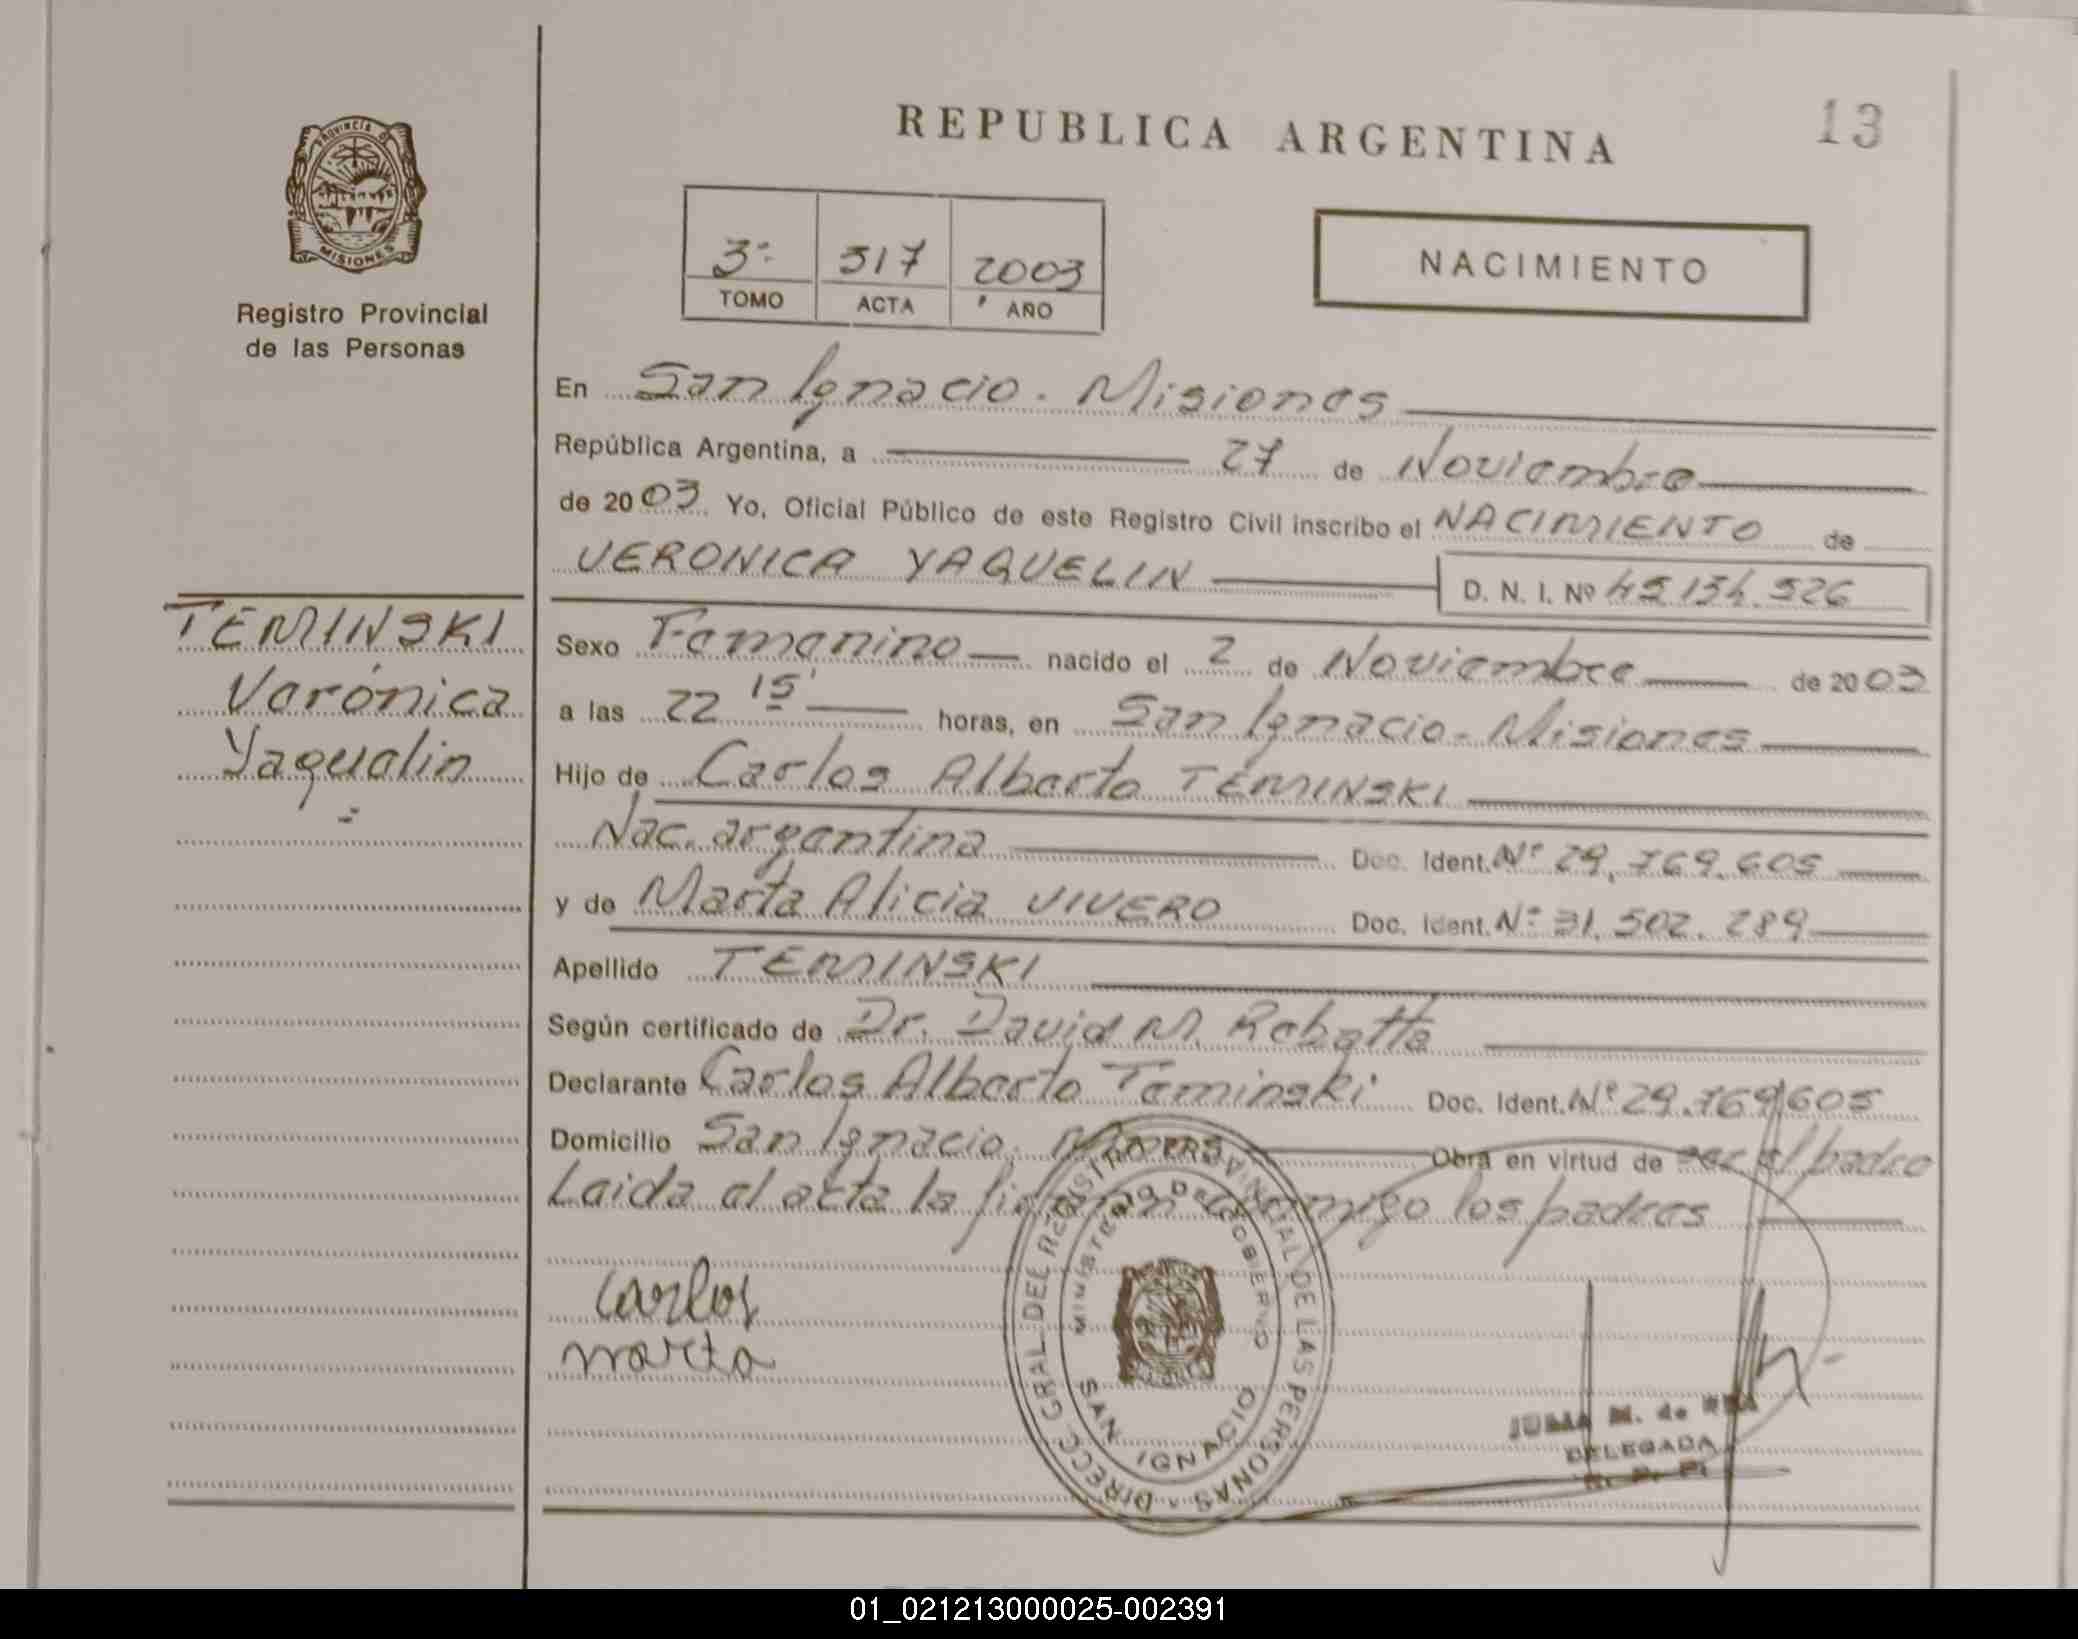 PROVINCIA DE
MISIONES
Registro Provincial
de las Personas
TEMINSKI
Verónica
Yaquelin
REPUBLICA ARGENTINA
13
3º 317 2003
TOMO ACTA AÑO
NACIMIENTO
En San Ignacio - Misiones
República Argentina, a 27 de Noviembre
de 2003 Yo, Oficial Público de este Registro Civil inscribo el NACIMIENTO de
VERONICA YAQUELIN D. N. I. Nº 45.134.526
Sexo Femenino nacido el 2 de Noviembre de 2003
a las 22 15' horas, en San Ignacio - Misiones
Hijo de Carlos Alberto TEMINSKI
Nac. argentina Doc. Ident. Nº 29.769.605
y de Marta Alicia VIVERO Doc. Ident. Nº 31.502.289
Apellido TEMINSKI
Según certificado de Dr. David M. Rebatta
Declarante Carlos Alberto Teminski Doc. Ident. Nº 29.769.605
Domicilio San Ignacio, Mnes Obra en virtud de ser el padre
Leida el acta la firman conmigo los padres
Carlos
marta
DIRECC GRAL DEL REGISTRO PROVINCIAL DE LAS PERSONAS
MINISTERIO DE GOBIERNO
SAN IGNACIO
JULIA M. de
DELEGADA
R. P. P.
01_021213000025-002391